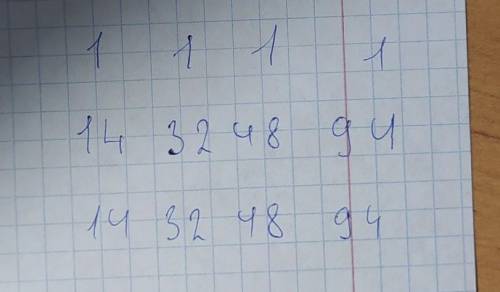 1 1 1 1
14 32 48 94
14 32 48 94